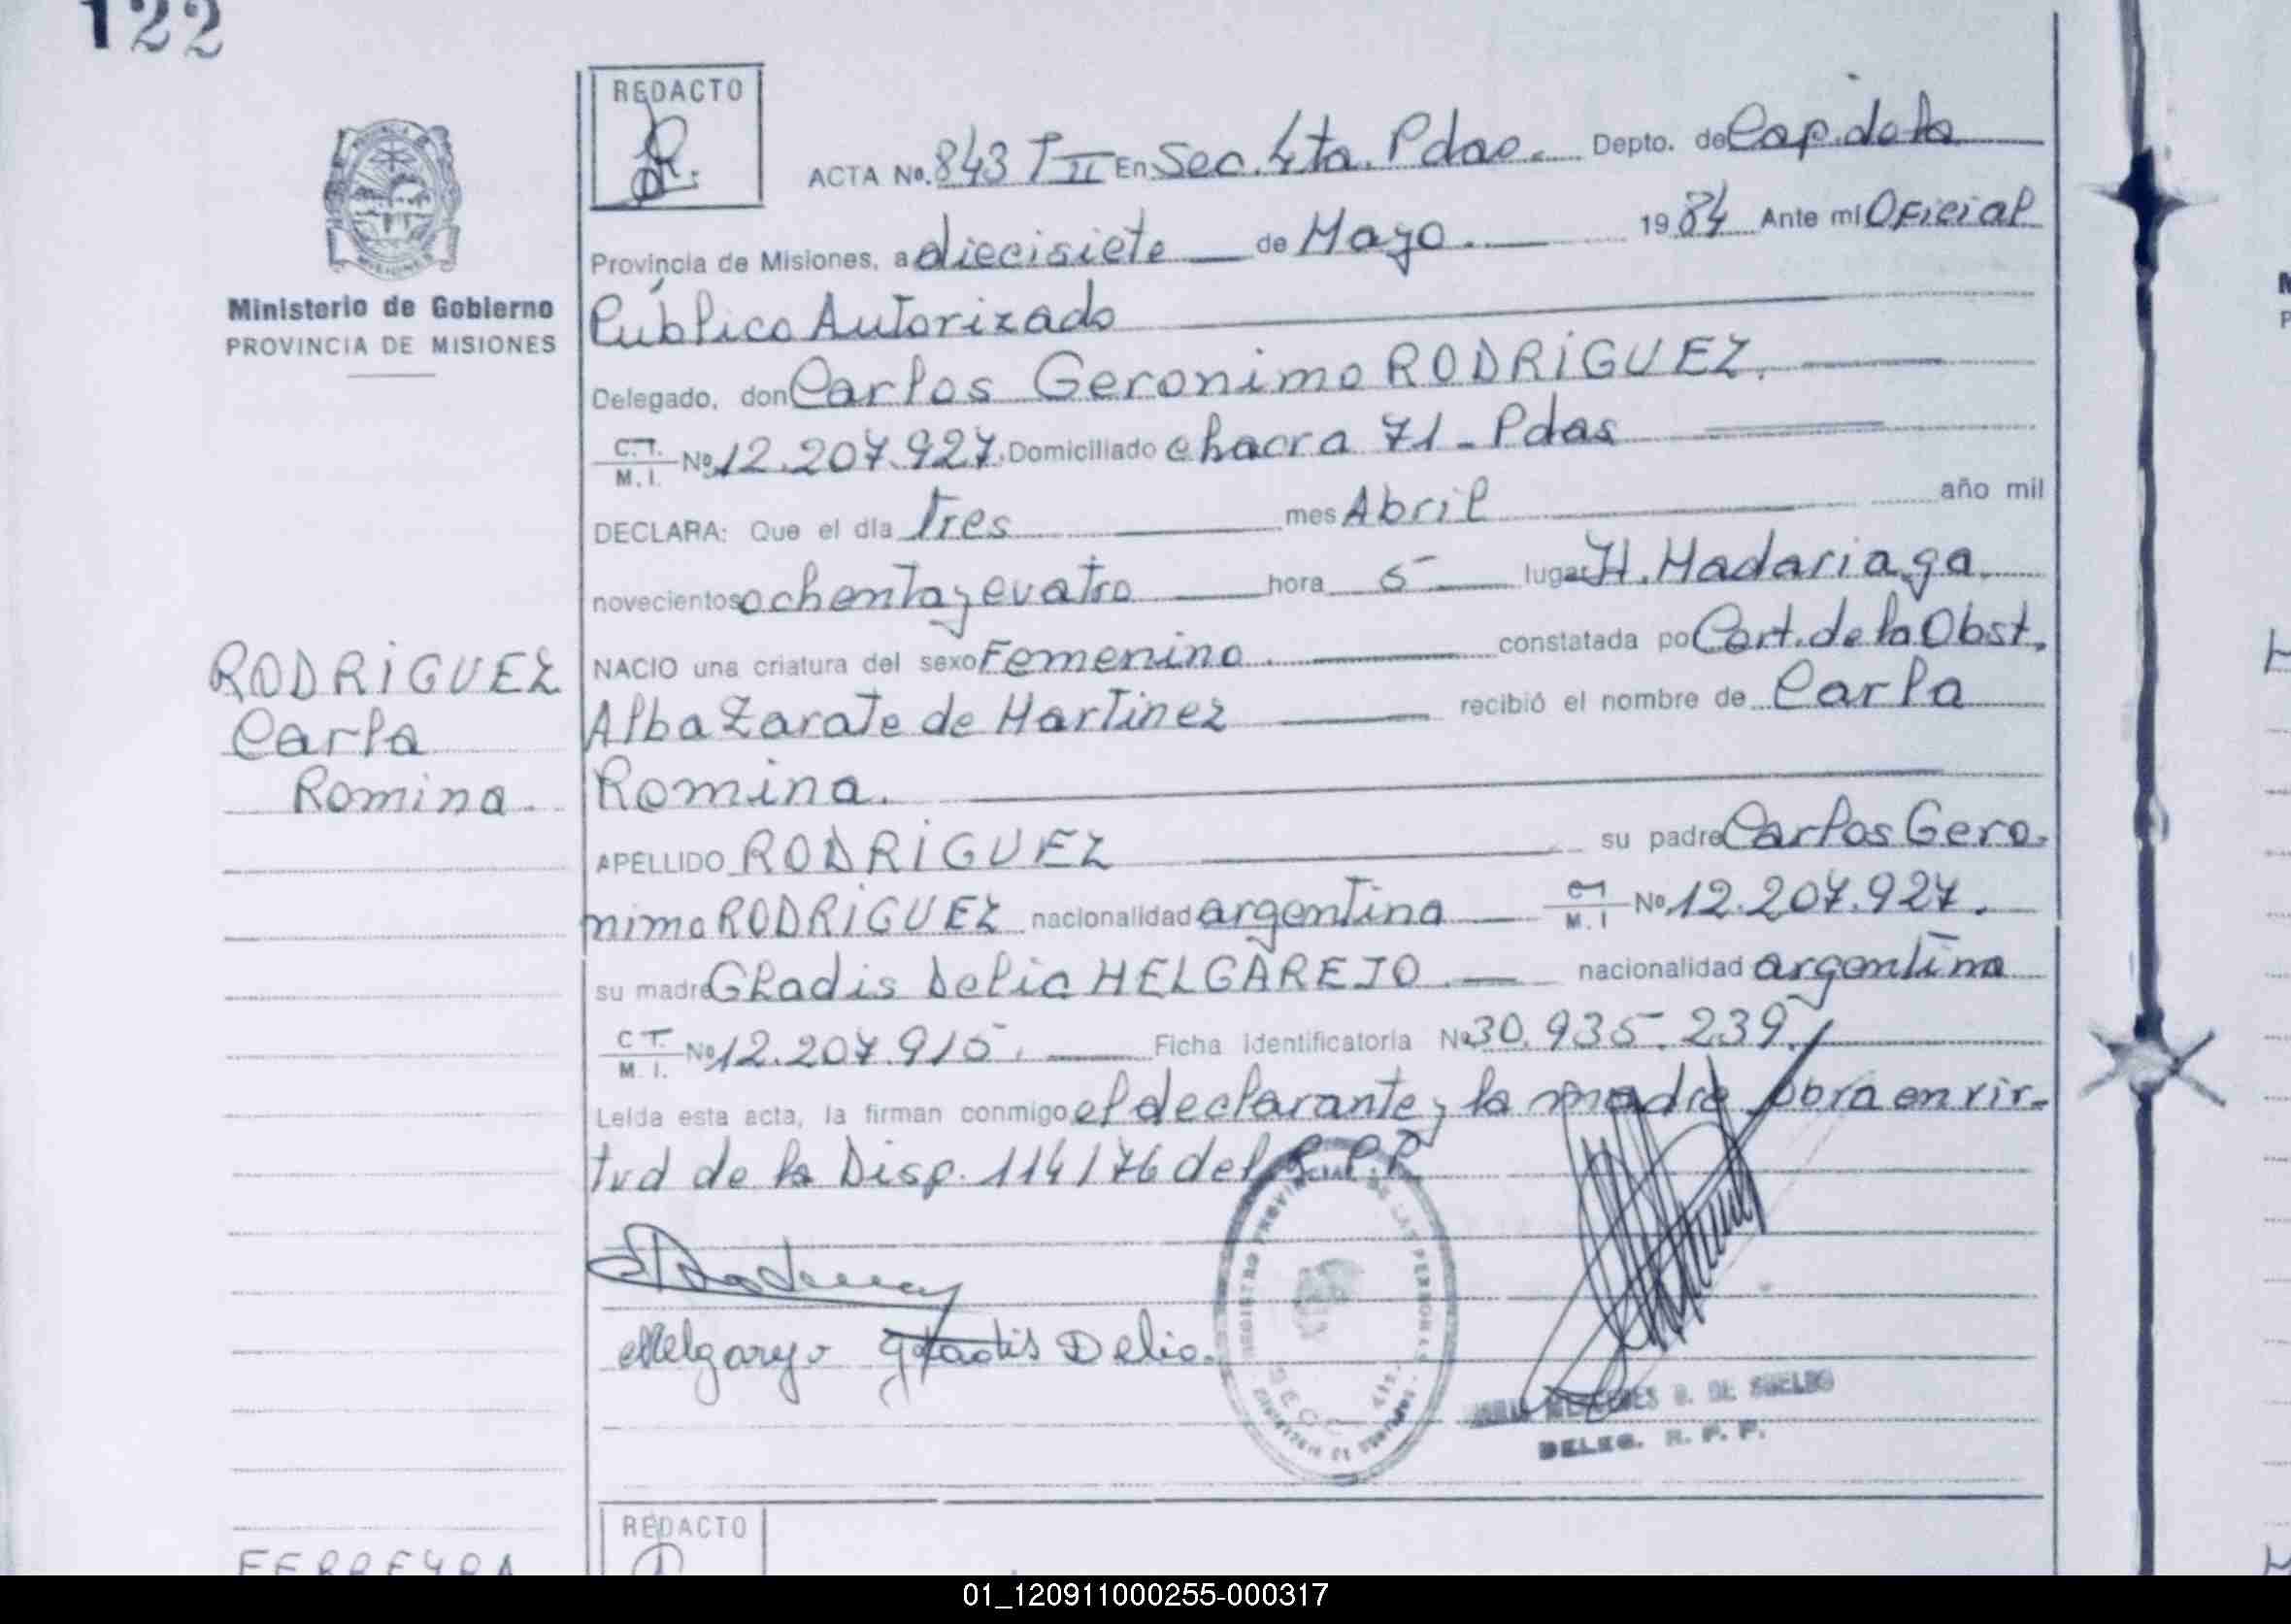 122
REDACTO
ACTA No. 843 T II En Sec. 4ta. Pdas. Depto. de Cap. de la
Provincia de Misiones, a diecisiete de Mayo. 1984 Ante mí Oficial
Público Autorizado
Delegado, don Carlos Geronimo RODRIGUEZ.
C.T. M.I. No 12.207.927. Domiciliado chacra 71 - Pdas
DECLARA: Que el día Tres mes Abril año mil
novecientos ochenta y cuatro hora 5 lugar H. Madariaga.
NACIO una criatura del sexo Femenino. constatada por Cert. de la Obst.
Alba Zarate de Martinez recibió el nombre de Carla
Romina.
APELLIDO RODRIGUEZ su padre Carlos Gero-
nimo RODRIGUEZ nacionalidad argentina M.I No 12.207.927.
su madre Gladis Delia MELGAREJO. nacionalidad argentina
C T. M. I. No 12.207.915. Ficha Identificatoria No 30.935.239.
Leída esta acta, la firman conmigo, el declarante y la madre obra en vir-
tud de la Disp. 114/76 del R.P.P.
Melgarejo Gladis Delia.
REGISTRO PROVINCIAL DE LAS PERSONAS
MERCEDES B. DE
DELEG. R. P. P.
Ministerio de Gobierno
PROVINCIA DE MISIONES
RODRIGUEZ
Carla
Romina.
REDACTO
FERREYRA
01_120911000255-000317